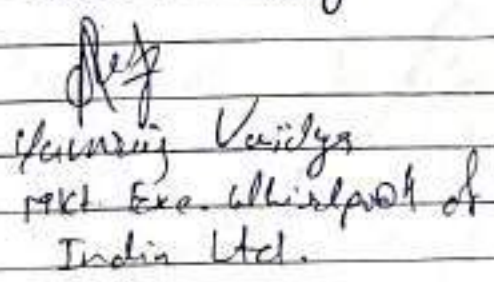 Vaidya
Mkt. Exe. Whirlpool of
India Ltd.